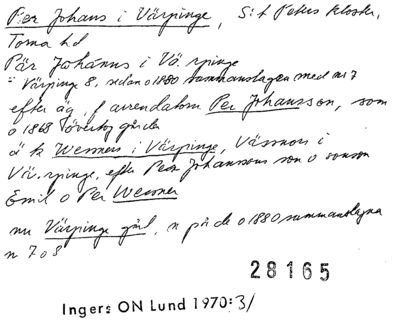 Per Johans i Värpinge, S:t Peters kloster,
Torna hd
Pär Johanns i Vä.rpinge
= Värpinge 8, sedan o 1880 sammanslagen med nr 7
efter äg, f arrendatorn Per Johansson, som
o 1868 övertog gården
ä k Wesmers i Värpinge, Väsmors i
Vä.rpinge, efter Per Johanssons son o sonson
Emil o Per Wesmer
nu Värpinge gård, n på de o 1880 sammanslagna
nr 7 o 8
28165
Ingers ON Lund 1970:31